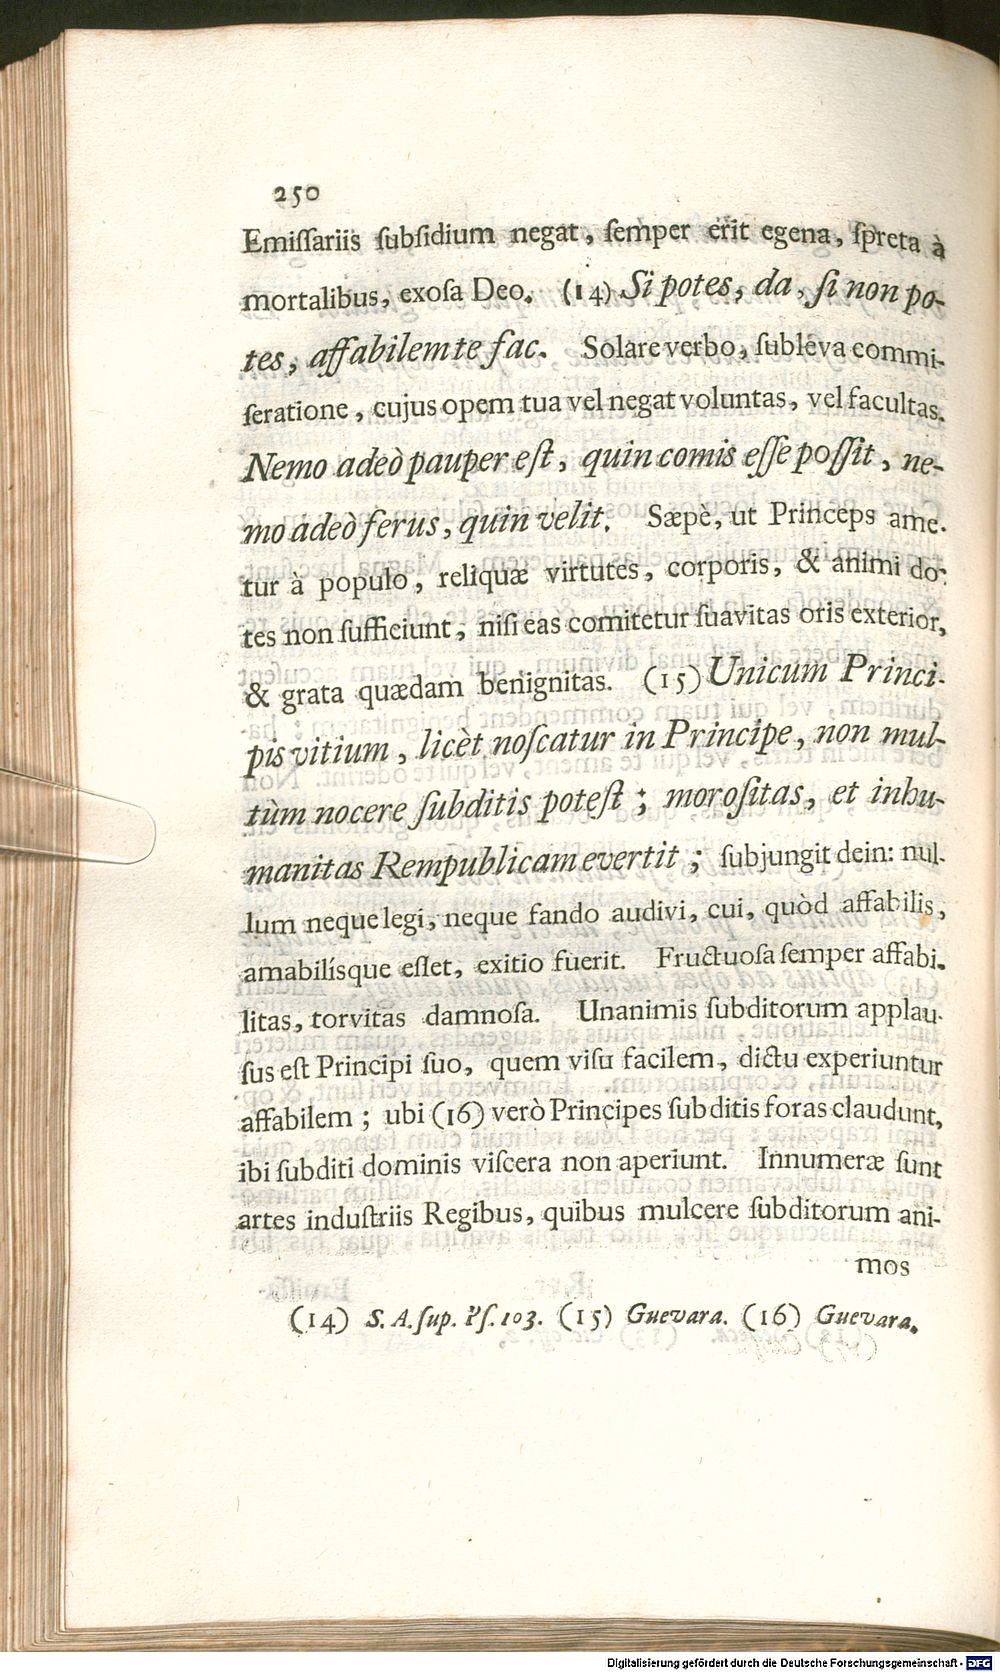 250
Emiſſariis ſubſidium negat, ſemper erit egena, ſpreta à
mortalibus, exoſa Deo. (14) Si potes, da, ſi non po-
tes, affabilem te fac. Solare verbo, ſubleva commi-
ſeratione, cujus opem tua vel negat voluntas, vel facultas.
Nemo adeò pauper eſt, quin comis eſſe poſſit, ne-
mo adeò ferus, quin velit. Sæpè, ut Princeps ame-
tur à populo, reliquæ virtutes, corporis, & animi do-
tes non ſufficiunt, niſi eas comitetur ſuavitas oris exterior,
& grata quædam benignitas. (15) Unicum Princi-
pis vitium, licèt noſcatur in Principe, non mul-
tùm nocere ſubditis poteſt; moroſitas, et inhu-
manitas Rempublicam evertit; ſubjungit dein: nul-
lum neque legi, neque fando audivi, cui, quòd affabilis,
amabilisque eſſet, exitio fuerit. Fructuoſa ſemper affabi-
litas, torvitas damnoſa. Unanimis ſubditorum applau-
ſus eſt Principi ſuo, quem viſu facilem, dictu experiuntur
affabilem; ubi (16) verò Principes ſubditis foras claudunt,
ibi ſubditi dominis viſcera non aperiunt. Innumeræ ſunt
artes induſtriis Regibus, quibus mulcere ſubditorum ani-
mos
(14) S. A. ſup. Pſ. 103. (15) Guevara. (16) Guevara.
Digitalisierung gefördert durch die Deutsche Forschungsgemeinschaft - DFG